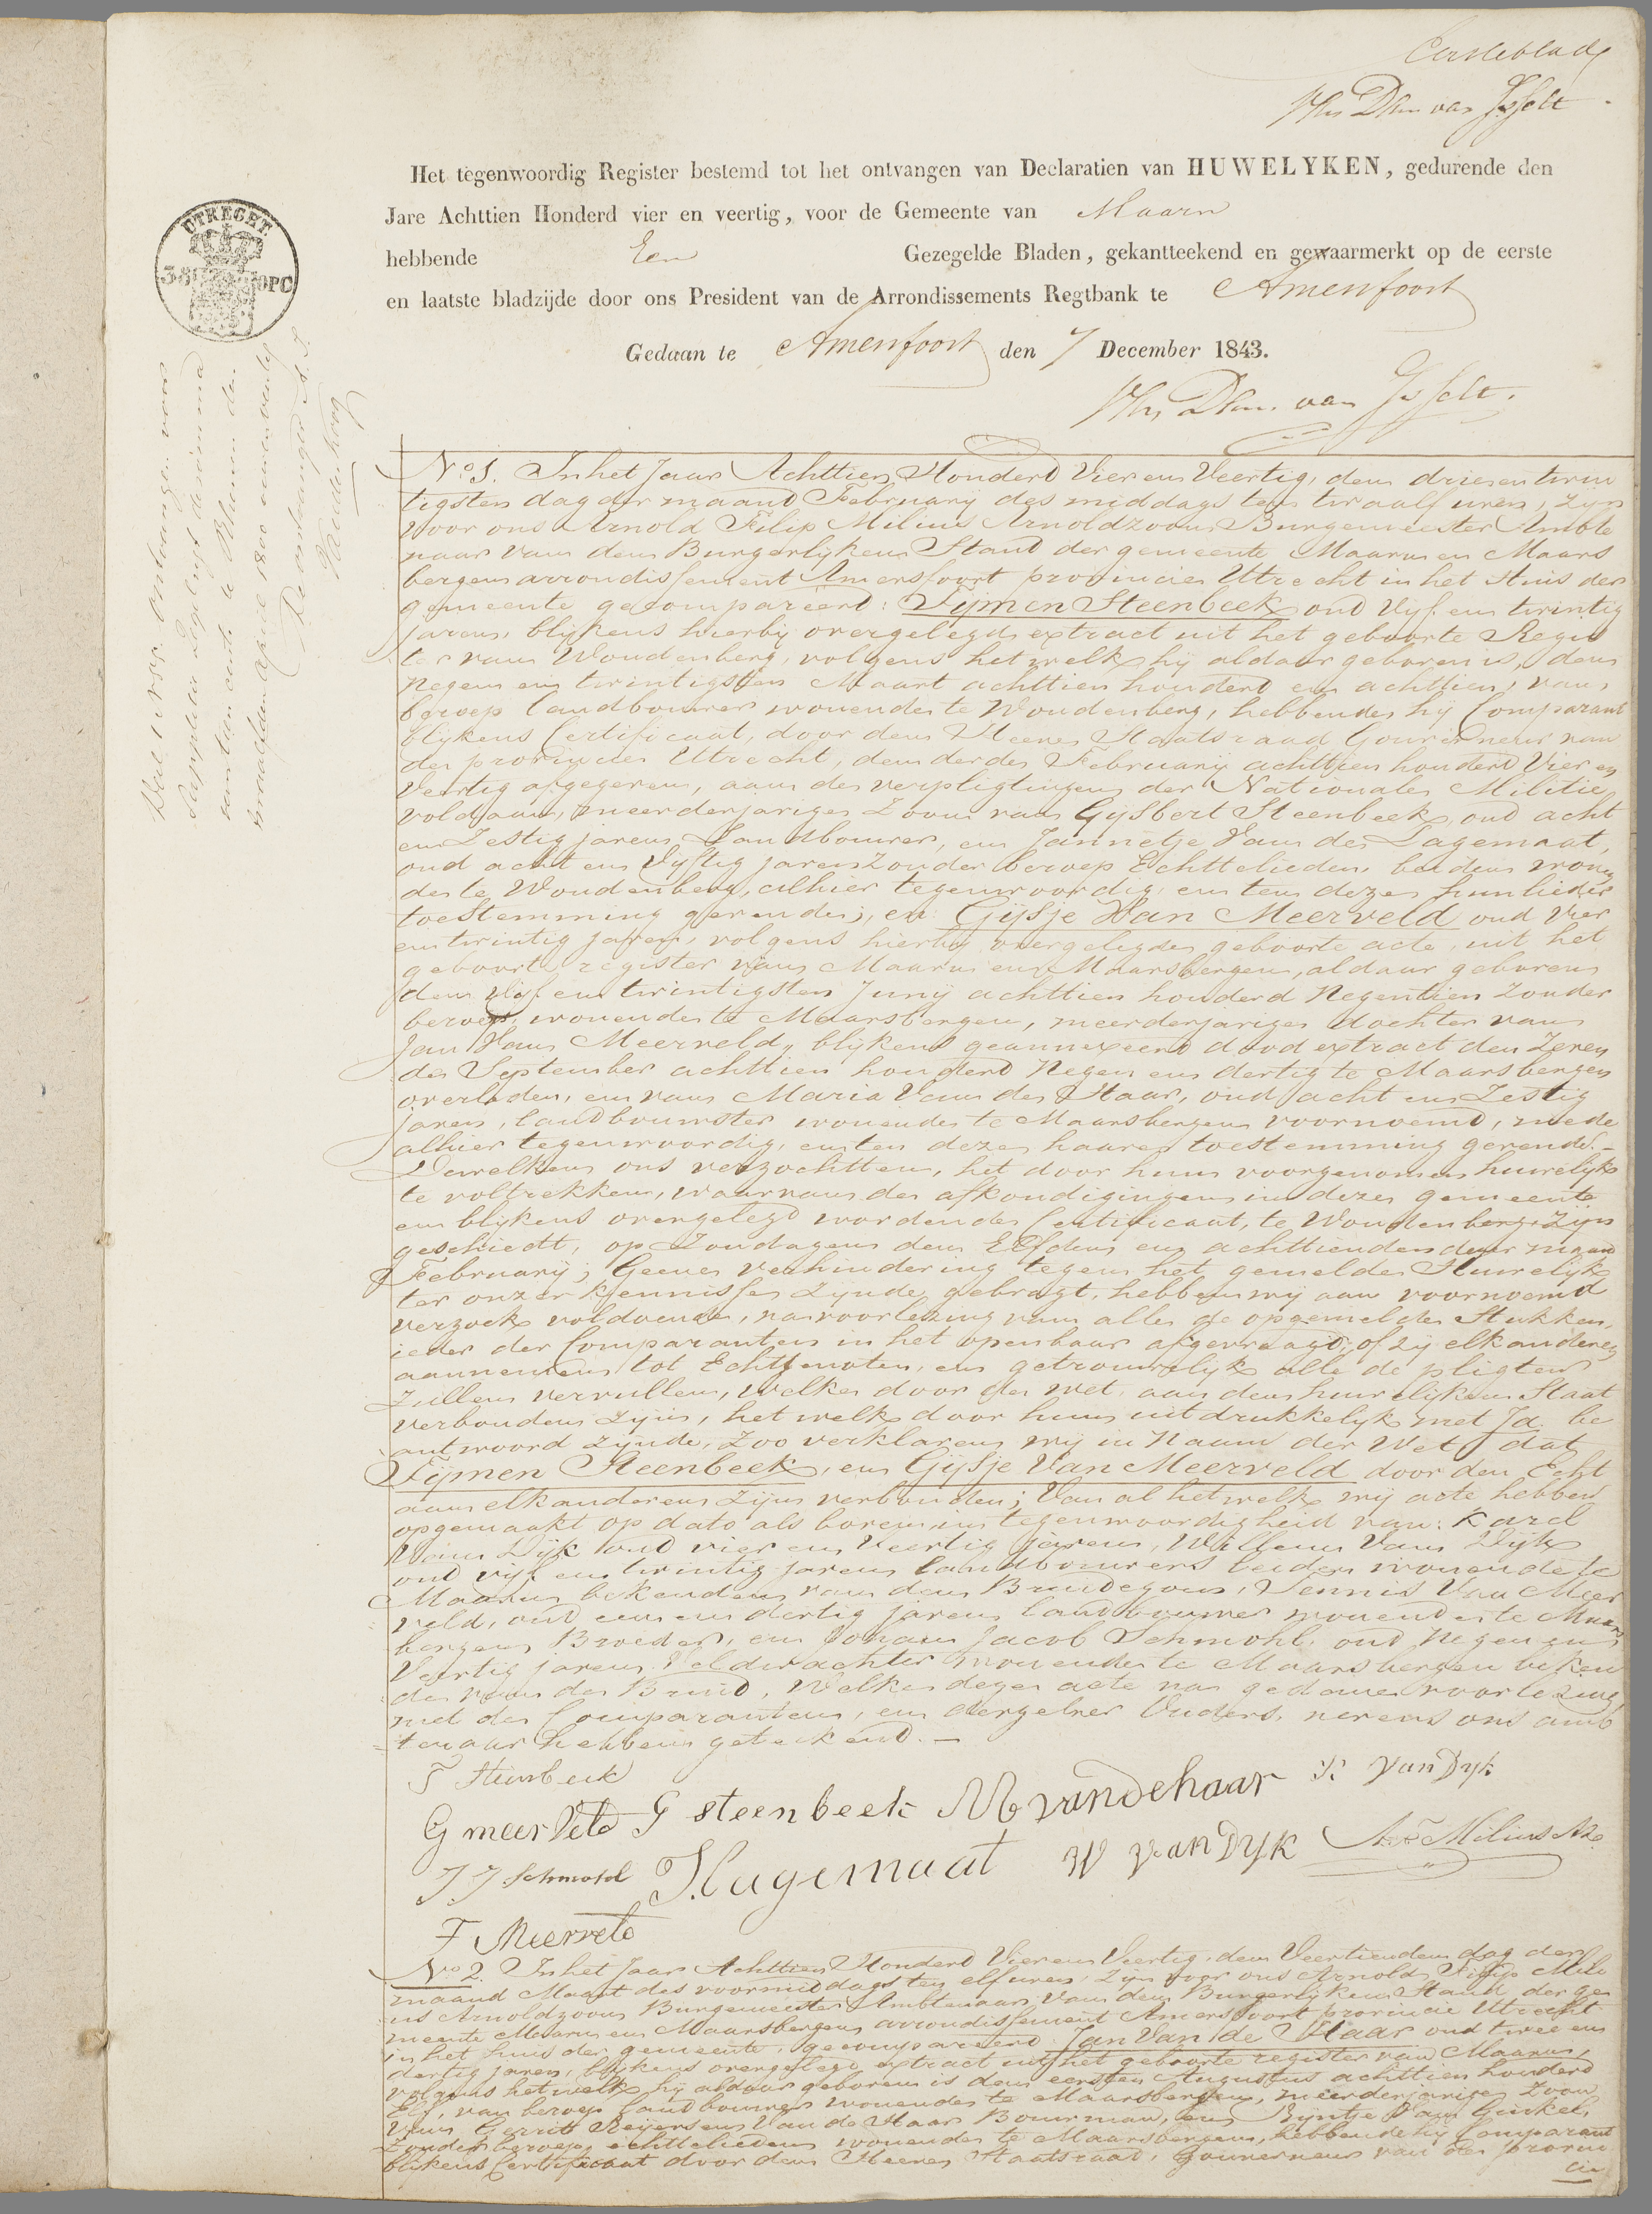 Eersteblad
Het tegenwoordig Register bestemd tot het ontvangen van Declaratien van HUWELYKEN, gedurende den
Jare Achttien Honderd vier en veertig, voor de Gemeente van Maarn
hebbende Een Gezegelde Bladen, gekantteekend en gewaarmerkt op de eerste
en laatste bladzijde door ons President van de Arrondissements Regtbank te Amersfoort
Gedaan te Amersfoort den 7 December 1843.
UTRECHT
N.o 1. In het Jaar Achttien Honderd Vier en Veertig, den drie en twin
tigsten dag der maand February des middags ten twaalf uren, zijn
voor ons Arnold Filip Milius Arnoldzoon Burgemeester Ambte
naar van den Burgerlyken Stand der gemeente Maarn en Maars
bergen arrondissement Amersfoort provincie Utrecht in het Huis der
gemeente gecompareerd: Tijmen Steenbeek oud Vijf en twintig
jaren, blijkens hierbij overgelegde extract uit het geboorte Regis
ter van Woudenberg, volgens hetwelk hij aldaar geboren is, den
Negen en twintigsten Maart achttien honderd en achttien, van
beroep landbouwer wonende te Woudenberg, hebbende hij Comparant
blijkens Certificaat, door den Heere Staatsraad Gouverneur van
de provincie Utrecht, den derde February achttien honderd Vier en
Veertig afgegeven, aan de verpligtingen der Nationale Militie
voldaan, meerderjarige Zoon van Gijsbert Steenbeek, oud acht
en Zestig jaren Landbouwer, en Jannetje Van de Lagemaat,
oud acht en Vijftig jaren zonder beroep Echtelieden, beiden wonen
de te Woudenberg, alhier tegenwoordig, en ten deze hunlieder
toestemming gevende; en Gijsje Van Meerveld oud Vier
en twintig jaren, volgens hierbij overgelegde geboorte acte, uit het
geboorte register van Maarn en Maarsbergen, aldaar geboren
den vijf en twintigsten Junij achttien honderd Negentien Zonder
beroep, wonende te Maarsbergen, meerderjarige dochter van
Jan Van Meerveld, blijkens geannexeerd dood extract den Zeven
de September achttien honderd Negen en dertig te Maarsbergen
overleden, en van Maria Van de Haar, oud acht en Zestig
jaren, landbouwster wonende te Maarsbergen voornoemd, mede
alhier tegenwoordig, en ten deze haare toestemming gevende.-
Dewelken ons verzochtten, het door hun voorgenomen huwelijk
te voltrekken, waarvan de afkondigingen in deze gemeente
en blijkens overgelegd wordende Certificaat, te Woudenberg Zijn
geschiedt, op Zondagen den Elfden en achttienden dezer maand
February; Geene verhindering tegen het gemelde Huwelijk
ter onzer kennisse Zijnde gebragt, hebben wij aan voornoemd
verzoek voldoende, na voorlezing van alle de opgemelde Stukken,
ieder der Comparanten in het openbaar afgevraagd, of zij elkanderen
aannemen tot Echtgenoten, en getrouwelijk alle de pligten
Zullen vervullen, welke door de wet, aan den huwelijken Staat
verbonden zijn, het welk door hun uitdrukkelijk met Ja. be
antwoord zijnde, Zoo verklaren wij in Naam der Wet dat
Tijmen Steenbeek, en Gijsje Van Meerveld door den Echt
aan elkanderen zijn verbonden; Van al het welk wij acte hebben
opgemaakt op dato als boven, in tegenwoordigheid van: Karel
Van Dijk oud vier en Veertig jaren, Willem Van Dijk
oud vijf en twintig jaren landbouwers beiden wonende te
Maarn bekenden van den Bruidegom, Teunis Van Meer
veld, oud een en dertig jaren landbouwer wonende te Maars
bergen Broeder, en Johan Jacob Schmohl, oud Negen en
Veertig jaren Veldwachter wonende te Maarsbergen beken
de van de Bruid, Welke deze acte na gedane voorlezing,
met de Comparanten, en dergelver Ouders, nevens ons amb
tenaar hebben geteekend.-
T Steenbeek
G meerveld G steenbeek M vandehaar K van Dyk
J J Schmohl J Lagemaat W van Dyk A F Milius Az
T Meerveld
N.o 2. In het Jaar Achttien Honderd Vier en Veertig, den Veertienden dag der
maand Maart des voormiddags ten elf uren, zijn voor ons Arnold Filip Mili
us Arnoldzoon Burgemeester Ambtenaar Van den Burgerlyken Stand der ge
meente Maarn en Maarsbergen arrondissement Amersfoort provincie Utrecht
in het huis der gemeente, gecompareerd Jan Van de Haar oud twee en
dertig jaren, blijkens overgelegd extract uit het geboorte register van Maarn,
volgens hetwelk hij aldaar geboren is den eersten Augustus achttien honderd
Elf, van beroep landbouwer wonende te Maarsbergen, meerderjarige Zoon
Van Gerrit Reijersen Van de Haar Bouwman, en Rijntje Van Ginkel,
Zonder beroep, echtelieden wonende te Maarsbergen, hebbende hij Comparant
blijkens Certificaat door den Heere Staatsraad, Gouverneur van de provin
cie